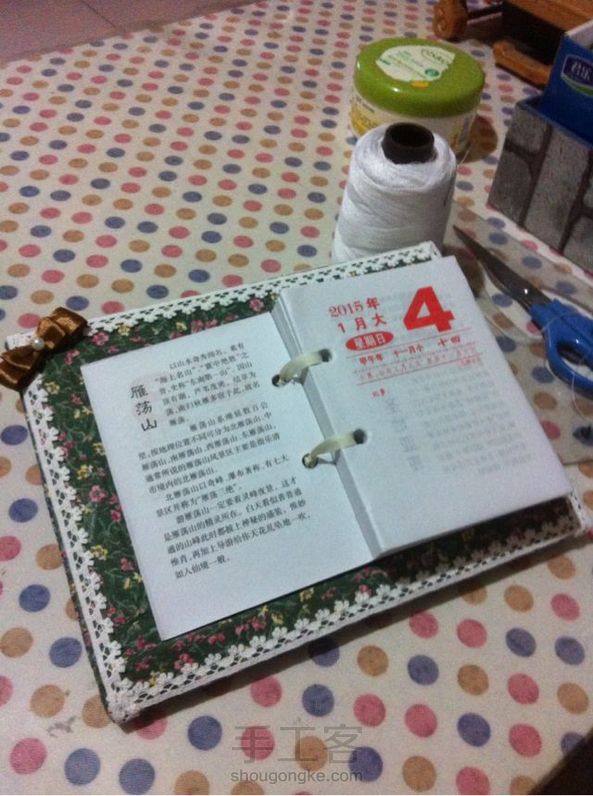 雁荡山
以山水奇秀闻名，素有
“海上名山”“寰中绝胜”之
誉，史称“东南第一山”。因山
顶有湖，芦苇茂密，结草为
荡，南归秋雁多宿于此，故名
雁荡。
雁荡山系绵延数百公
里，按地理位置不同可分为北雁荡山、中
雁荡山、南雁荡山、西雁荡山、东雁荡山，
通常所说的雁荡山风景区主要是指乐清
市境内的北雁荡山。
北雁荡山以奇峰、瀑布著称，有七大
景区并称为“雁荡三绝”。
游雁荡山一定要看灵峰夜景，这才
是雁荡山的精灵所在。白天看似普普通
通的山峰此时都披上神秘的盛装，惟妙
惟肖，再加上导游给你天花乱坠地一吹，
如入仙境一般。
2015年
1月大
4
星期日
甲午年 十一月小 十四
手工客
shougongke.com